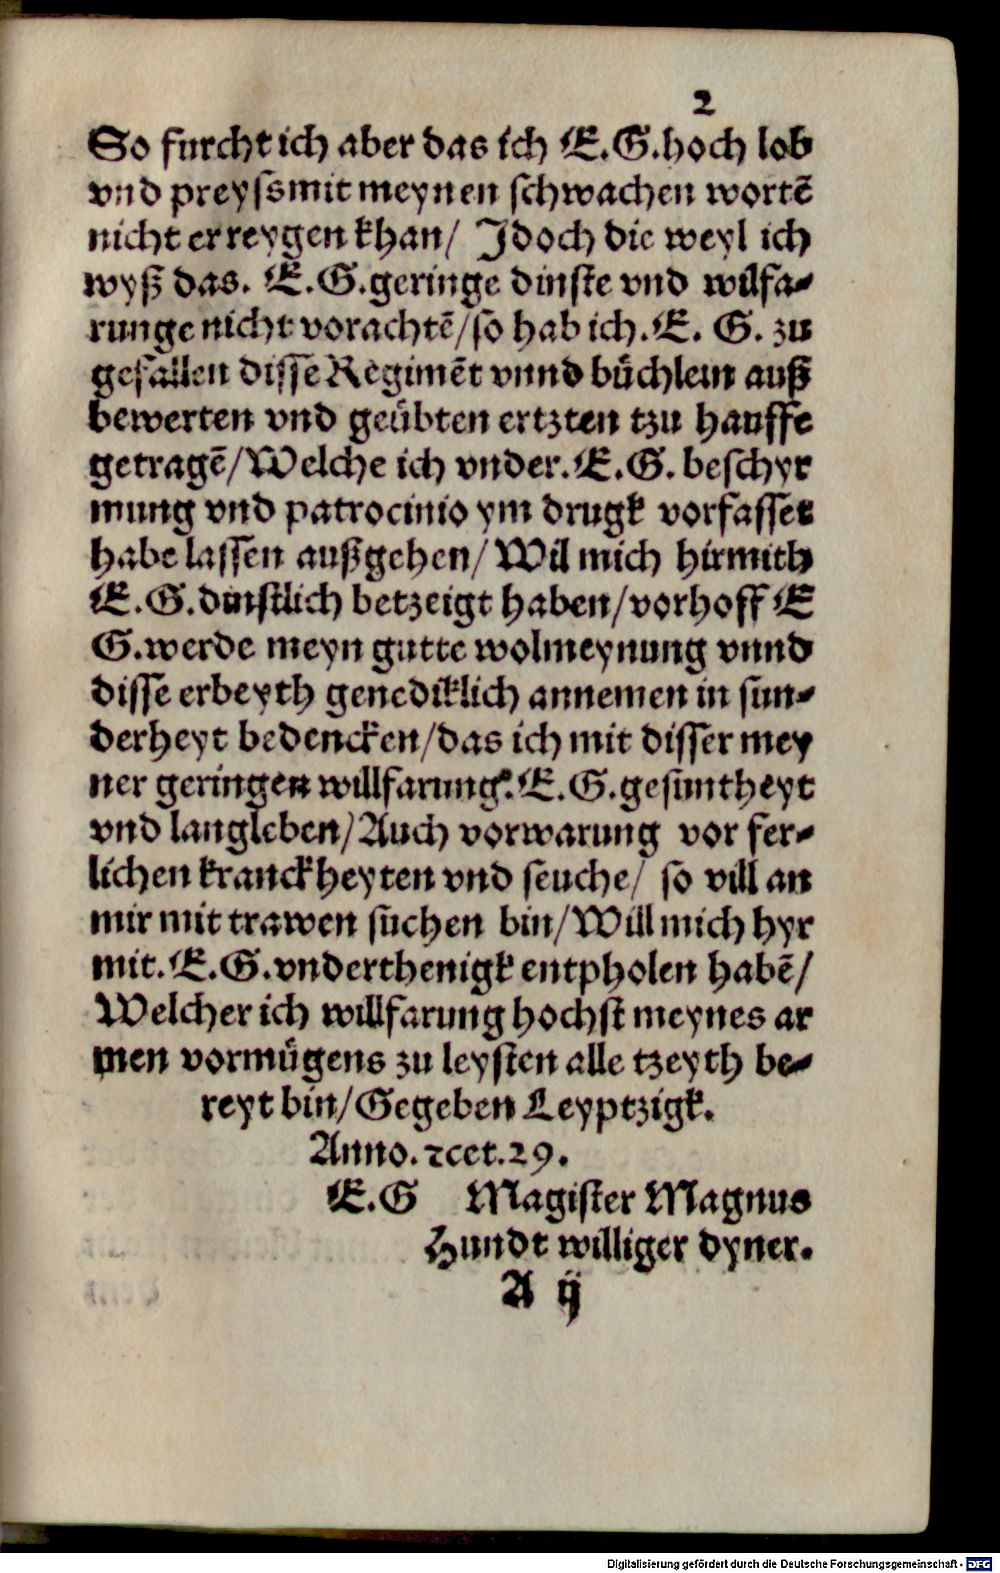 2
So furcht ich aber das ich E.G.hoch lob
vnd preyss mit meynen schwachen wortē
nicht erreygen khan/ Jdoch die weyl ich
wyß das. E.G.geringe dinste vnd wilfa-
runge nicht vorachtē/so hab ich.E. G. zu
gefallen disse Regimēt vnnd büchlein auß
bewerten vnd geübten ertzten tzu hauffe
getragē/Welche ich vnder.E.G. beschyr
mung vnd patrocinio ym drugk vorfasset
habe lassen außgehen/ Wil mich hirmith
E.G.dinstlich betzeigt haben/vorhoff E
G.werde meyn gutte wolmeynung vnnd
disse erbeyth genediklich annemen in sun-
derheyt bedencken/das ich mit disser mey
ner geringen willfarung.E.G.gesuntheyt
vnd langleben/Auch vorwarung vor fer-
lichen kranckheyten vnd seuche/ so vill an
mir mit trawen suchen bin/Will mich hyr
mit.E.G.vnderthenigk entpholen habē/
Welcher ich willfarung hochst meynes ar
men vormügens zu leysten alle tzeyth be-
reyt bin/Gegeben Leyptzigk.
Anno. ⁊cet.29.
E.G Magister Magnus
Hundt williger dyner.
A ij
Digitalisierung gefördert durch die Deutsche Forschungsgemeinschaft - DFG